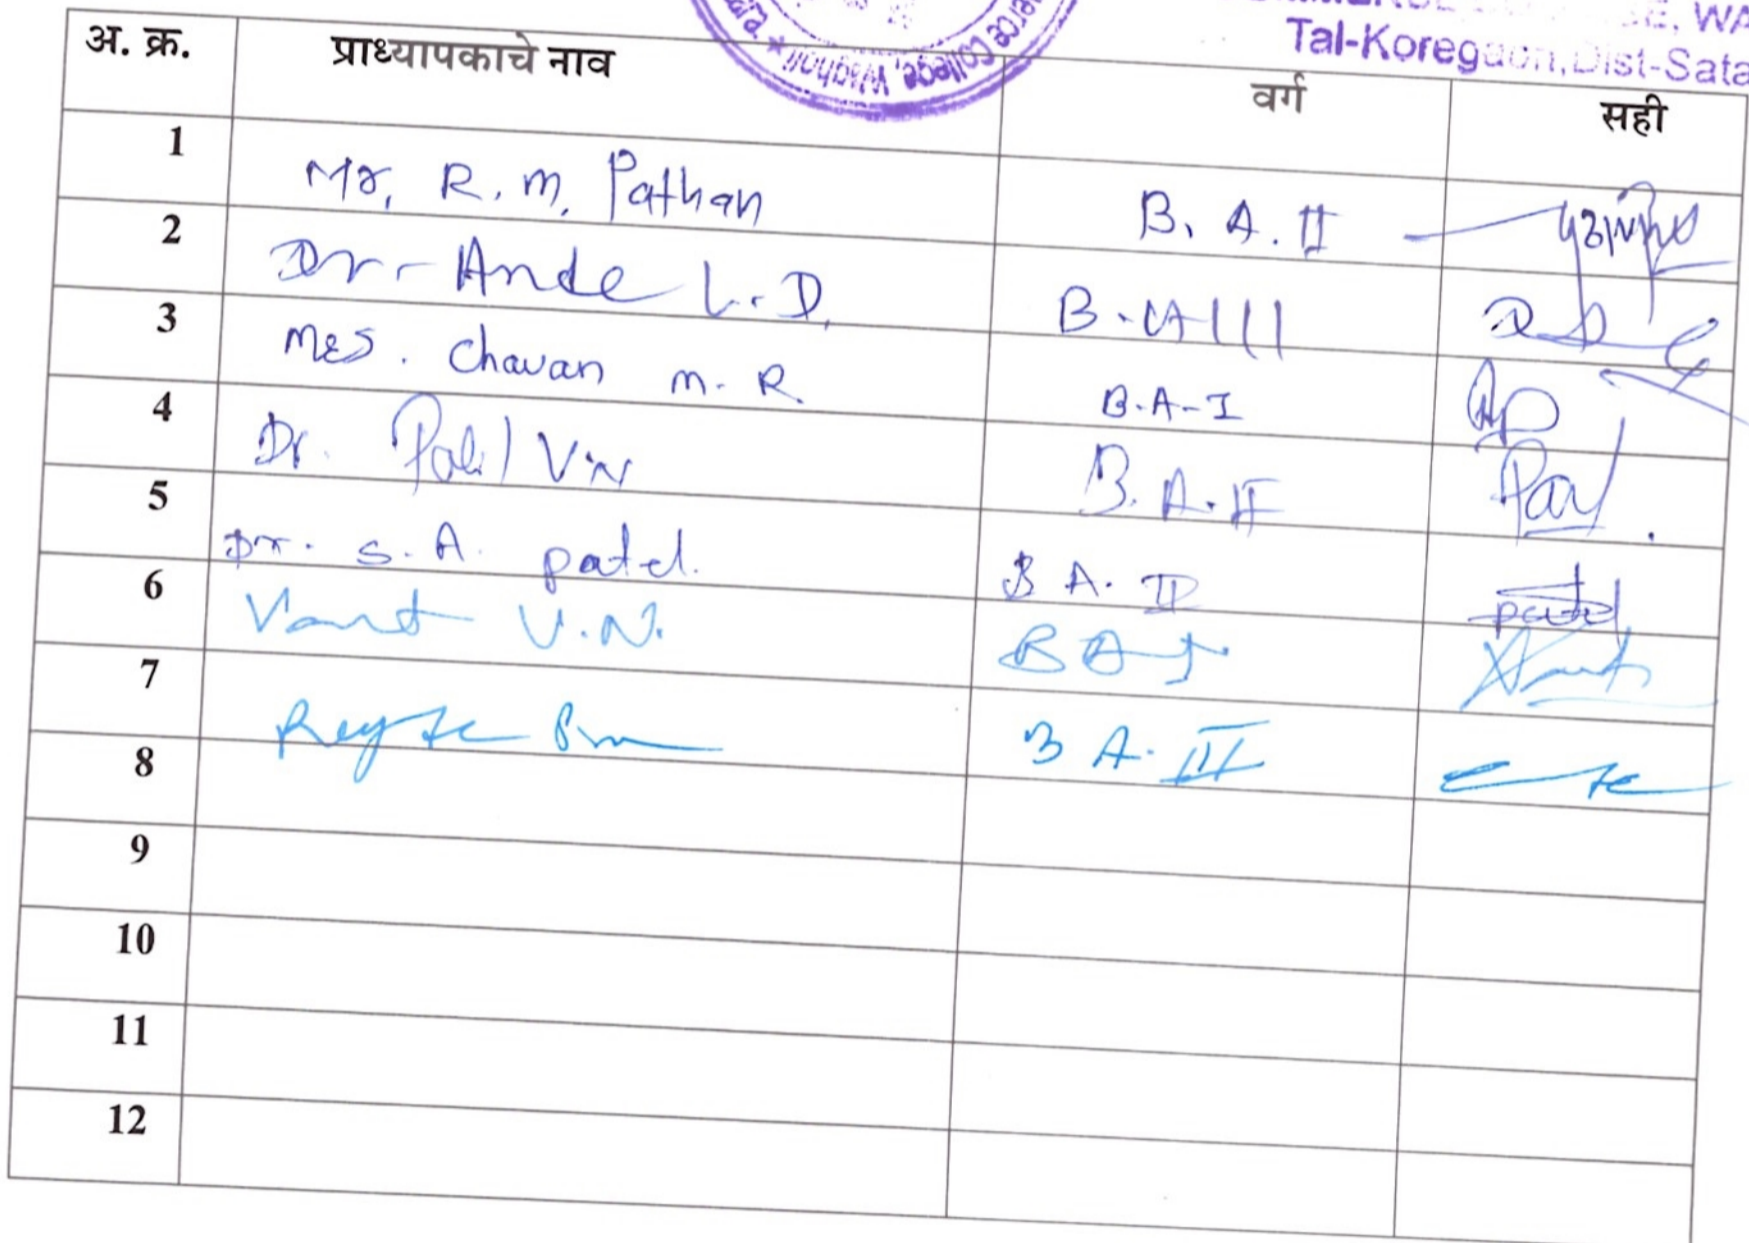 Commerce College, Wagholi *
WA
Tal-Koregaon, Dist-Sata
अ. क्र. प्राध्यापकाचे नाव वर्ग सही
1 Mr. R. M. Pathan B. A. II
2 Dr. Ande L. D. B. A III
3 Mrs. Chavan M. R. B.A-I
4 Dr. Patil V N B. A. II
5 Dr. S. A. patel. B A. II patel
6 V.N. B A I
7 B A. III
8
9
10
11
12